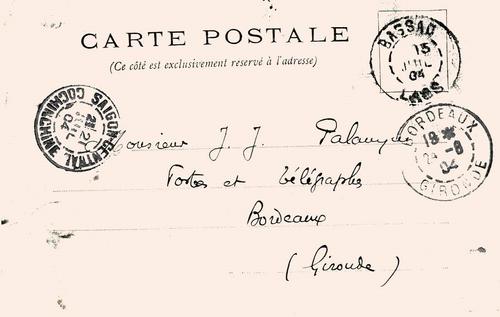 CARTE POSTALE
(Ce côté est exclusivement reservé à l'adresse)
BASSAC
15
JUIL
04
LAOS
SAIGON-CENTRAL
21
04
COCHINCHINE
BORDEAUX
18
24 -8
04
GIRONDE
Monsieur J. J.
Postes et télégraphes
Bordeaux
(Gironde)